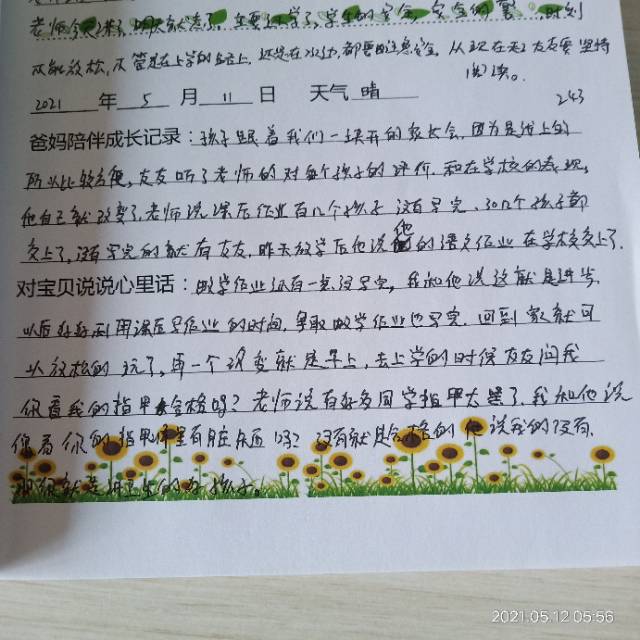 老师今天讲了,明天就忘了。主要上学了,学生的安全,安全的 ,时刻
不能放松,不管是在上学的路上,还是在水边,都要注意安全。从现在起友友要坚持
阅读。
2021 年 5 月 11 日 天气 晴 243
爸妈陪伴成长记录:孩子跟着我们一块开的家长会,因为是线上的
所以比较方便,友友听了老师的对每个孩子的评价,和在学校的表现,
他自己就改变了,老师说课后作业有几个孩子没有写完,30几个孩子都
交上了,没有写完的就有友友,昨天放学后他说他的语文作业在学校交上了,
对宝贝说说心里话:数学作业还有一点没写完,我和他说这就是进步,
以后好好利用课后写作业的时间,争取数学作业也写完,回到家就可
以放松的玩了,再一个改变就是早上,去上学的时候友友问我
你看我的指甲合格吗?老师说有好多同学指甲太黑了,我和他说
你看你的指甲里有脏东西吗?没有就是合格的他说我的没有,
那你就是讲卫生的好孩子。
2021.05.12 05:56